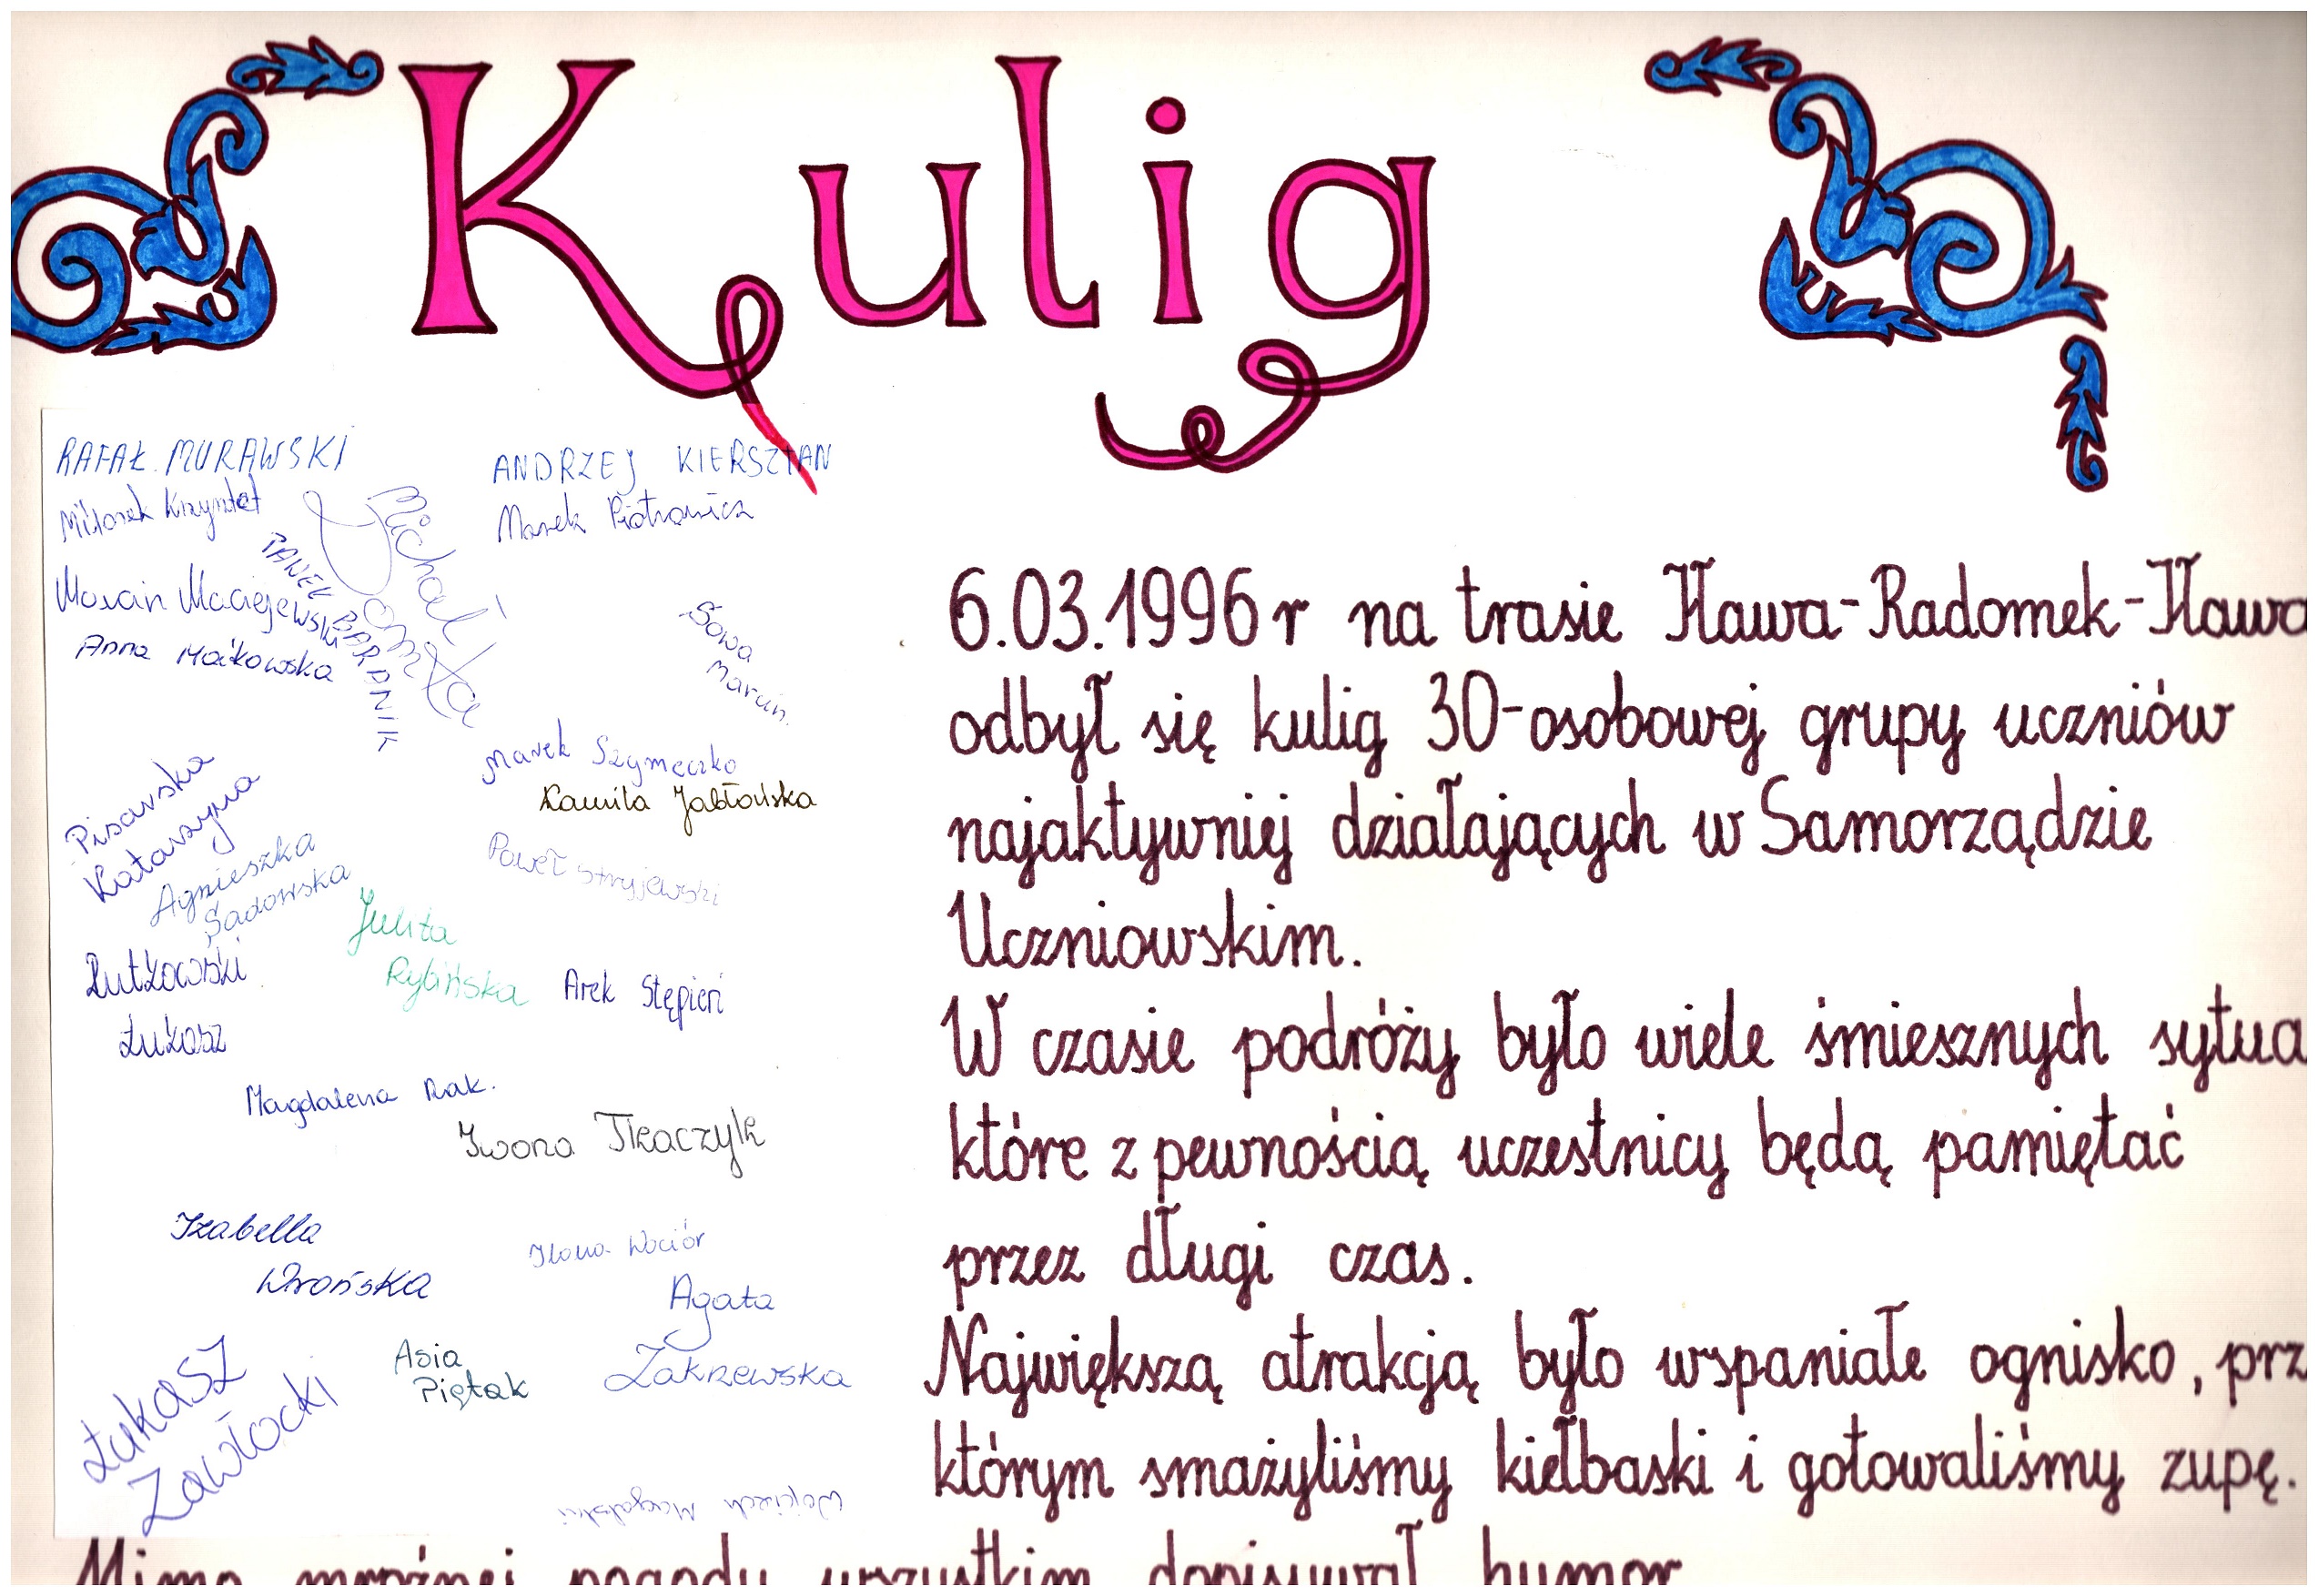 Kulig
RAFAŁ MURAWSKI
ANDRZEJ KIERSZTAN
Marek Piotrowicz
PAWEŁ BARANIK
Michał
Marcin Maciejewski
Anna Maćkowska
Sowa
Marcin.
Marek Szymeczko
Kamila Jabłońska
Pisarska
Katarzyna
Agnieszka
Sadowska
Paweł Stryjewski
Julita
Rybińska
Rutkowski
Łukasz
Arek Stępień
Magdalena Rak.
Iwona Tkaczyk
Izabella
Wrońska
Ilona Wociór
Agata
Zakrzewska
Asia
Piętak
ŁukASZ
Zawłocki
Wojciech
6.03.1996r na trasie Iława-Radomek-Iława
odbył się kulig 30-osobowej grupy uczniów
najaktywniej działających w Samorządzie
Uczniowskim.
W czasie podróży było wiele śmiesznych sytua
które z pewnością uczestnicy będą pamiętać
przez długi czas.
Największą atrakcją było wspaniałe ognisko, prz
którym smażyliśmy kiełbaski i gotowaliśmy zupę.
Mimo mroźnej pogody wszystkim dopisywał humor